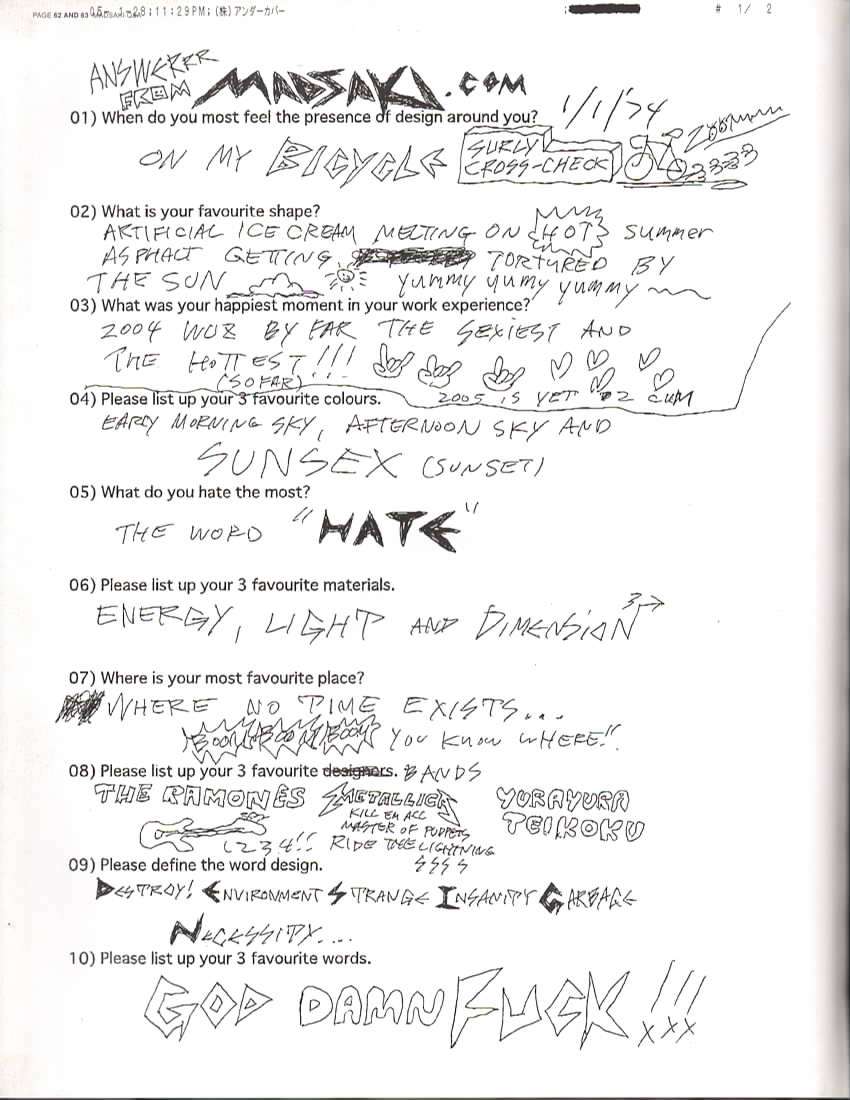 PAGE 62 AND 63 MADSAKI Q&A 05- 1-28;11:29PM;(株)アンダーカバー # 1/ 2
ANSWERRR
FROM MADSAKI.COM
01) When do you most feel the presence of design around you? 1/1/'74
ON MY BICYCLE SURLY CROSS-CHECK
02) What is your favourite shape?
ARTIFICIAL ICE CREAM MELTING ON HOT Summer
ASPHALT GETTING TORTURED BY
THE SUN yummy yumy yummy
03) What was your happiest moment in your work experience?
2004 WUZ BY FAR THE SEXIEST AND
THE HOTTEST!!!
(SO FAR)
04) Please list up your 3 favourite colours. 2005 IS YET 2 CUM
EARLY MORNING SKY, AFTERNOON SKY AND
SUNSEX (SUNSET)
05) What do you hate the most?
THE WORD "HATE"
06) Please list up your 3 favourite materials.
ENERGY, LIGHT AND DIMENSION 3
07) Where is your most favourite place?
WHERE NO TIME EXISTS...
BOOM BOOM BOOM YOU KNOW WHERE!!
08) Please list up your 3 favourite designers. BANDS
THE RAMONES METALLICA YURAYURA
KILL EM ALL TEIKOKU
MASTER OF PUPPETS
1234!! RIDE THE LIGHTNING
09) Please define the word design.
DESTROY! ENVIRONMENT STRANGE INSANITY GARBAGE
NECESSITY....
10) Please list up your 3 favourite words.
GOD DAMN FUCK!!!
XXX